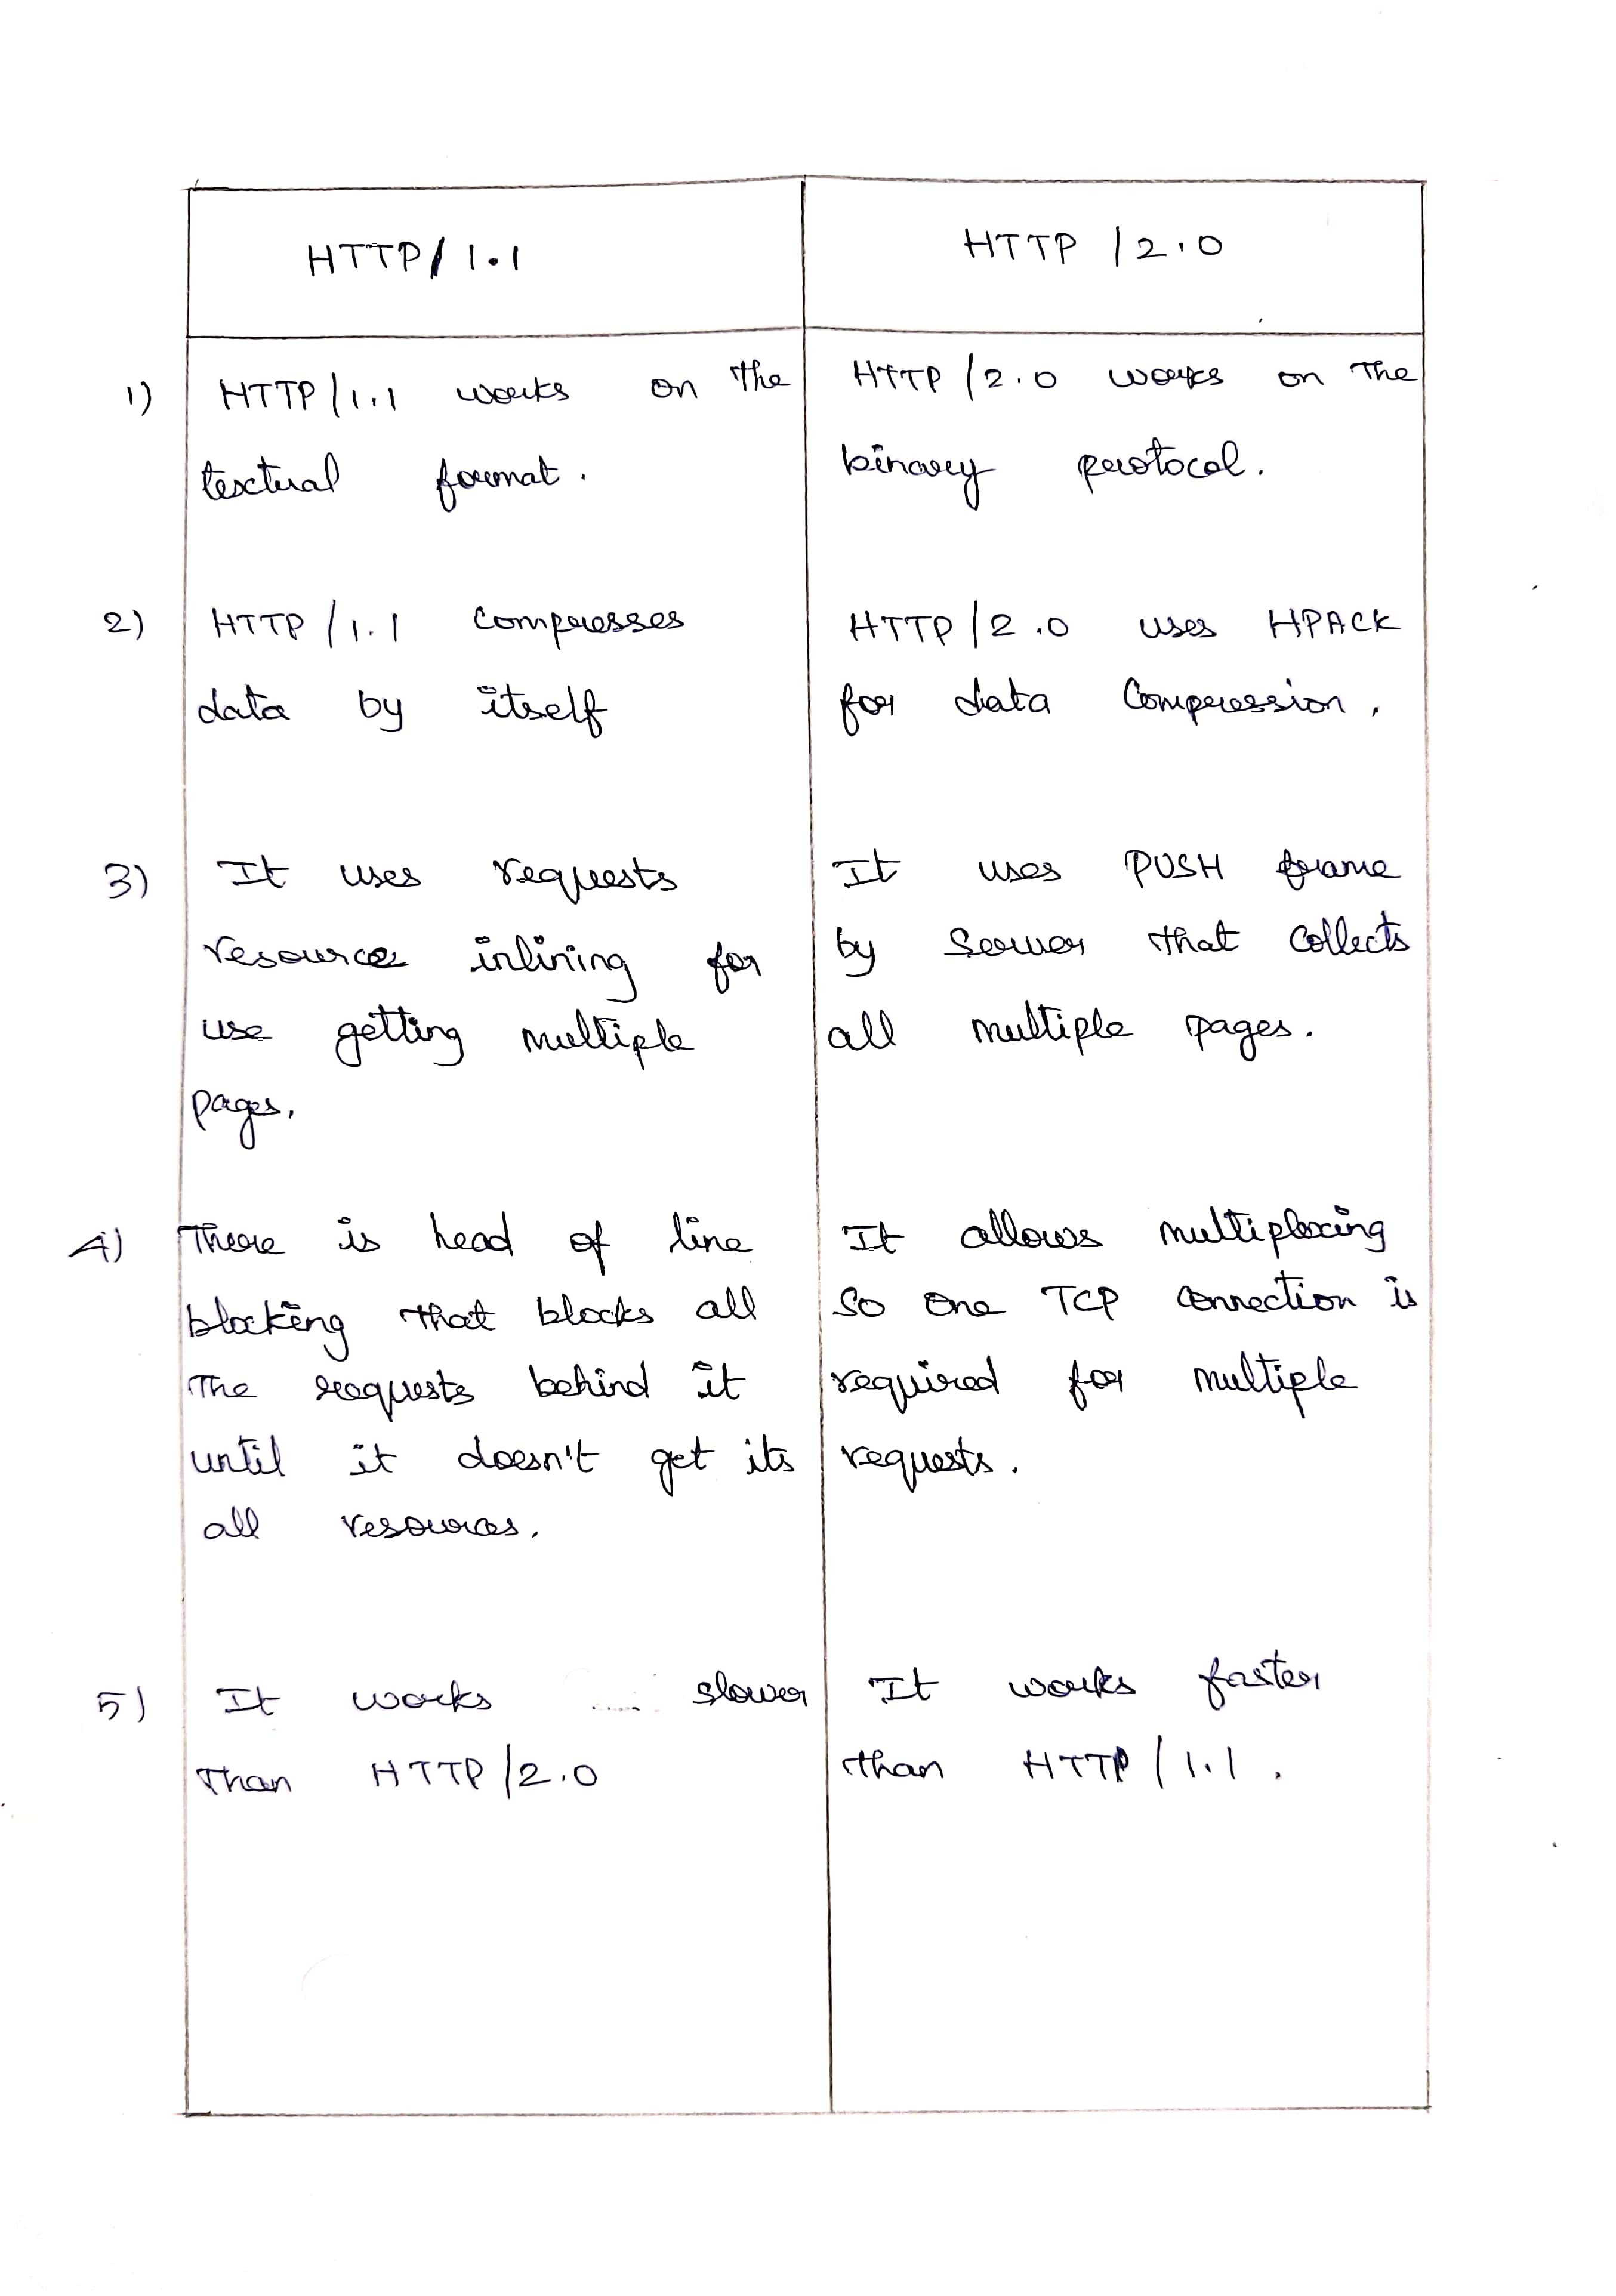 HTTP/1.1
HTTP/2.0
1) HTTP/1.1 works on the
textual format.
HTTP/2.0 works on the
binary protocol.
2) HTTP/1.1 compresses
data by itself
HTTP/2.0 uses HPACK
for data compression.
3) It uses requests
resource inlining for
use getting multiple
pages.
It uses PUSH frame
by server that collects
all multiple pages.
4) There is head of line
blocking that blocks all
the requests behind it
until it doesn't get its
all resources.
It allows multiplexing
so one TCP connection is
required for multiple
requests.
5) It works slower
than HTTP/2.0
It works faster
than HTTP/1.1.